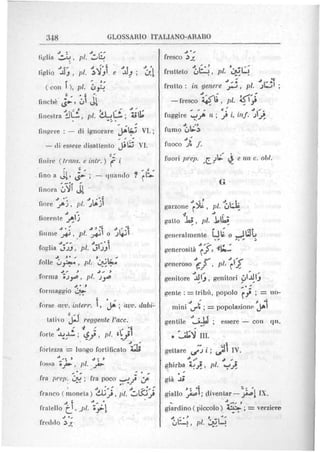 348 GLOSSARIO ITALIANO-ARABO
figlia بنت, pl. بنات
figlio ولد, pl. اولاد e ولد ; ابن
( con ا ), pl.
finchè حتى, الى ان
finestra شباك, pl. شبابيك ; طاقة
fingere : — di ignorare تجاهل VI. ;
— di essere disattento تغافل VI.
finire ( trans. e intr. )
fino a الى, حتى ; — quando ?
finora الى الآن
fiore زهر, pl. ازهار
fiorente
fiume نهر, pl. انهر o انهار
foglia ورق, pl. اوراق
folle مجنون, pl. مجانين
forma صورة, pl. صور
formaggio جبن
forse avv. interr. ا, هل ; avv. dubi-
tativo لعل reggente l'acc.
forte شديد ; قوي, pl. اقوياء
fortezza = luogo fortificato قلعة
fossa حفرة, pl. حفر
fra prep. بين ; fra poco عن قريب
franco ( moneta ) فرنك, pl. فرنكات
fratello اخ, pl. اخوة
freddo برد
fresco
frutteto بستان, pl. بساتين
frutto : in genere ثمر, pl. اثمار ;
— fresco فاكهة, pl. فواكه
fuggire هرب u ; فر i, inf. فرار
fumo دخان
fuoco نار f.
fuori prep. خارج في e na c. obl.
G
garzone غلام, pl. غلمان
gatto قط, pl. قطاط
generalmente غالبا o بالغالب
generosità كرم, سخاء
generoso كريم, pl. كرام
genitore والد, genitori والدان
gente : = tribù, popolo قوم ; = uo-
mini ناس ; = popolazione اهل
gentile لطيف ; essere — con qn.
III.
gettare رمى i ; القى IV.
ghirba قربة, pl. قرب
già قد
giallo اصفر ; diventar — اصفر IX.
giardino ( piccolo ) جنينة ; = verziere
بستان, pl. بساتين